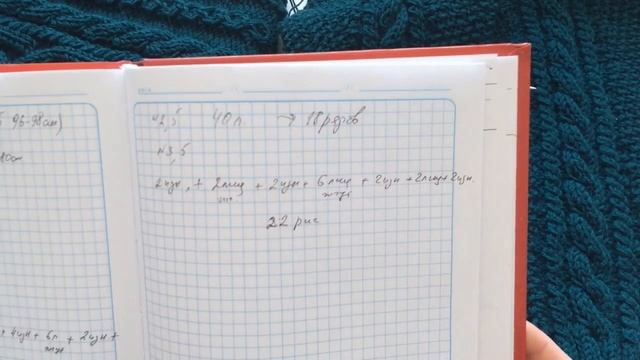 96-98см)
N3,5 40п. → 18 рядов
N3,5
2изн. + 2лиц + 2изн + 6лиц + 2изн + 2лиц + 2изн.
жгут
22 рис
+ 4изн + 6л + 2изн +
жгут